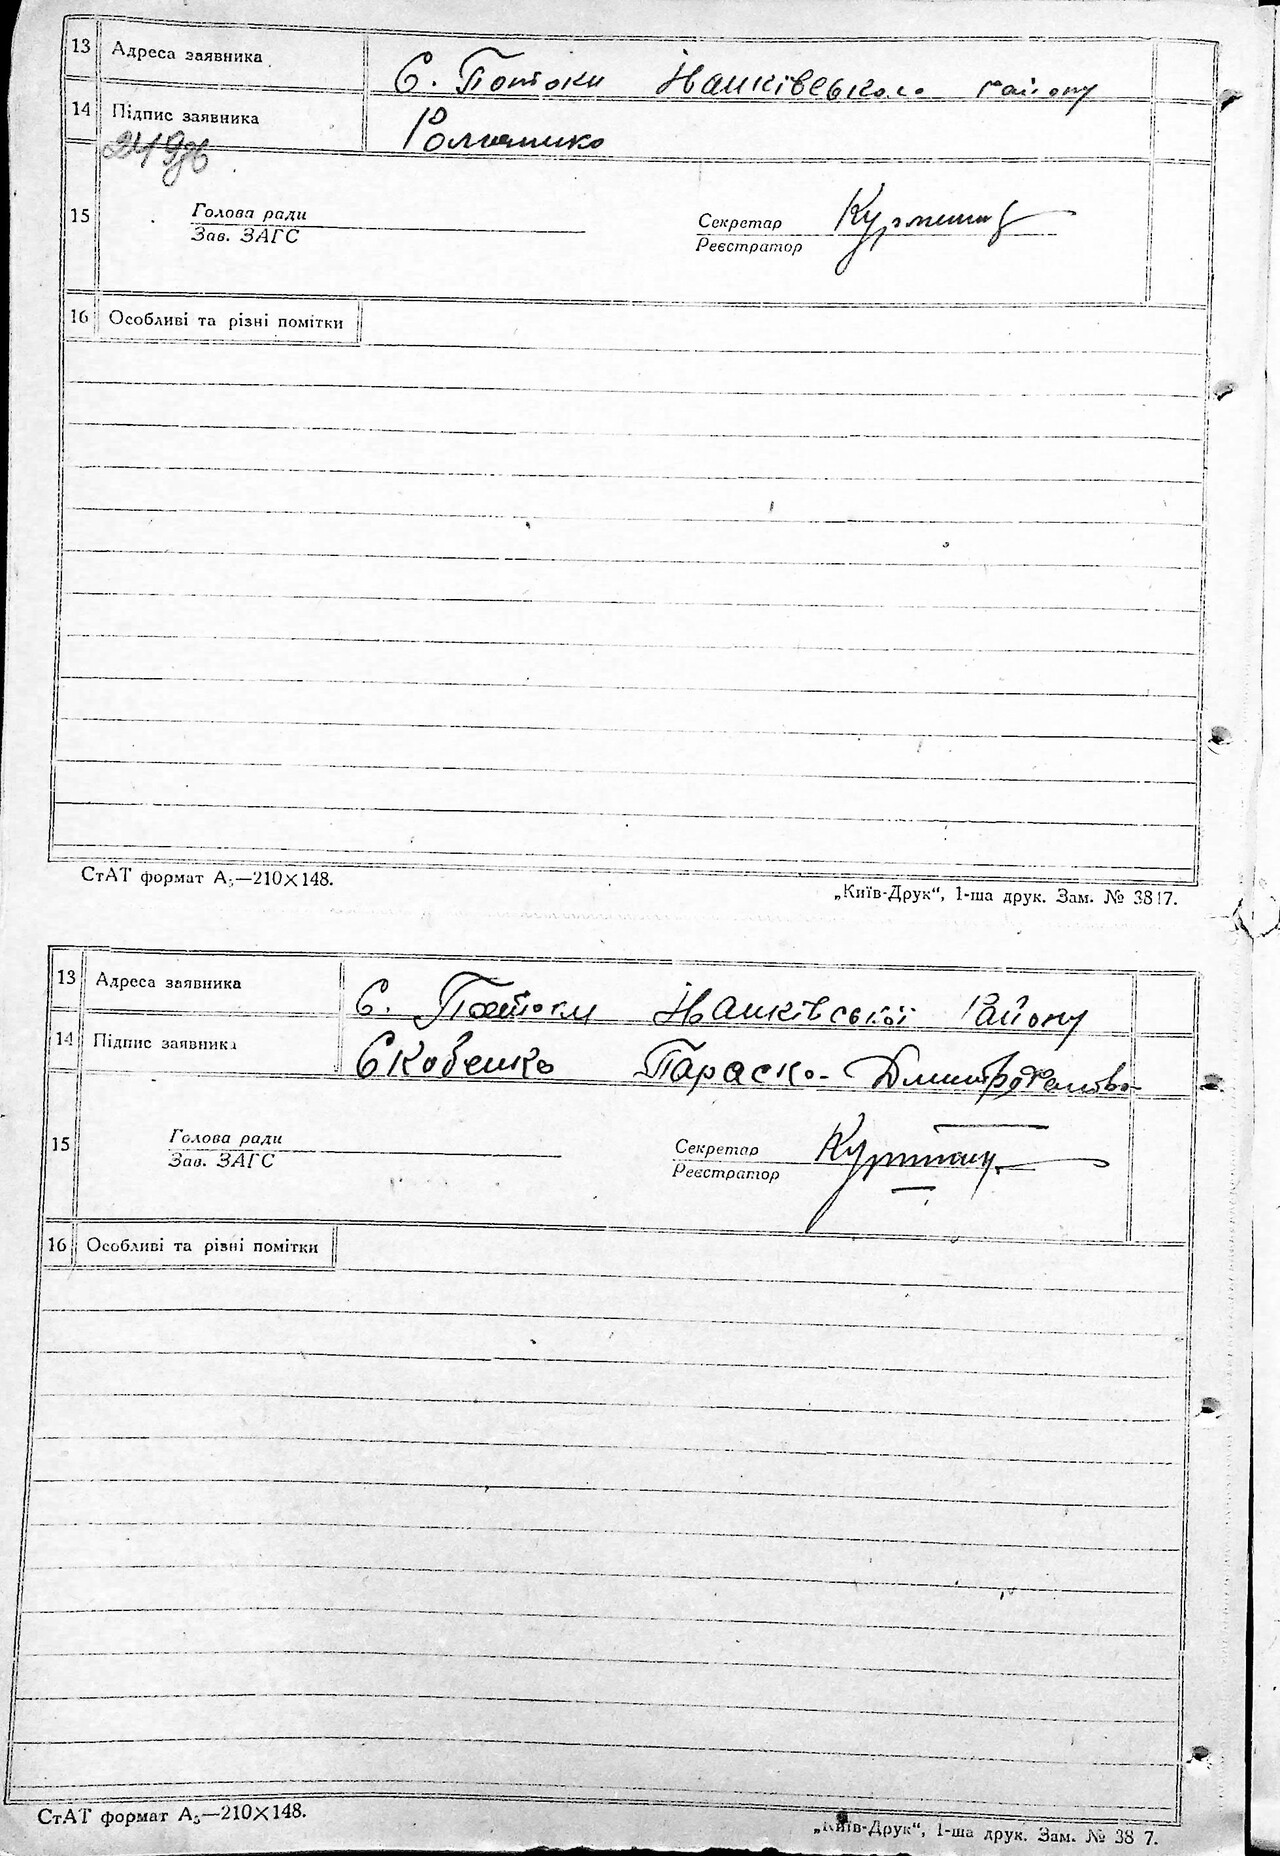 13 Адреса заявника С. Потоки Манківського району
14 Підпис заявника
15 Голова ради Секретар
Зав. ЗАГС Реєстратор
16 Особливі та різні помітки
СтАТ формат А₅—210×148.
„Київ-Друк“, 1-ша друк. Зам. № 3817.
13 Адреса заявника С. Потоки Манківської Району
14 Підпис заявника Скобенко Параска Дмитрофановна
15 Голова ради Секретар
Зав. ЗАГС Реєстратор
16 Особливі та різні помітки
СтАТ формат А₅—210×148.
„Київ-Друк“, 1-ша друк. Зам. № 38 7.